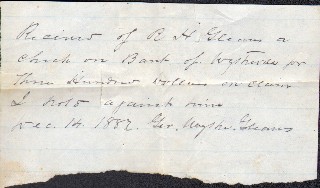 Received of R. H. Gleaves a
Check on Bank of Wytheville for
Three Hundred dollars on claim
I hold against him
Dec. 14. 1887. Geo. Wythe. Gleaves